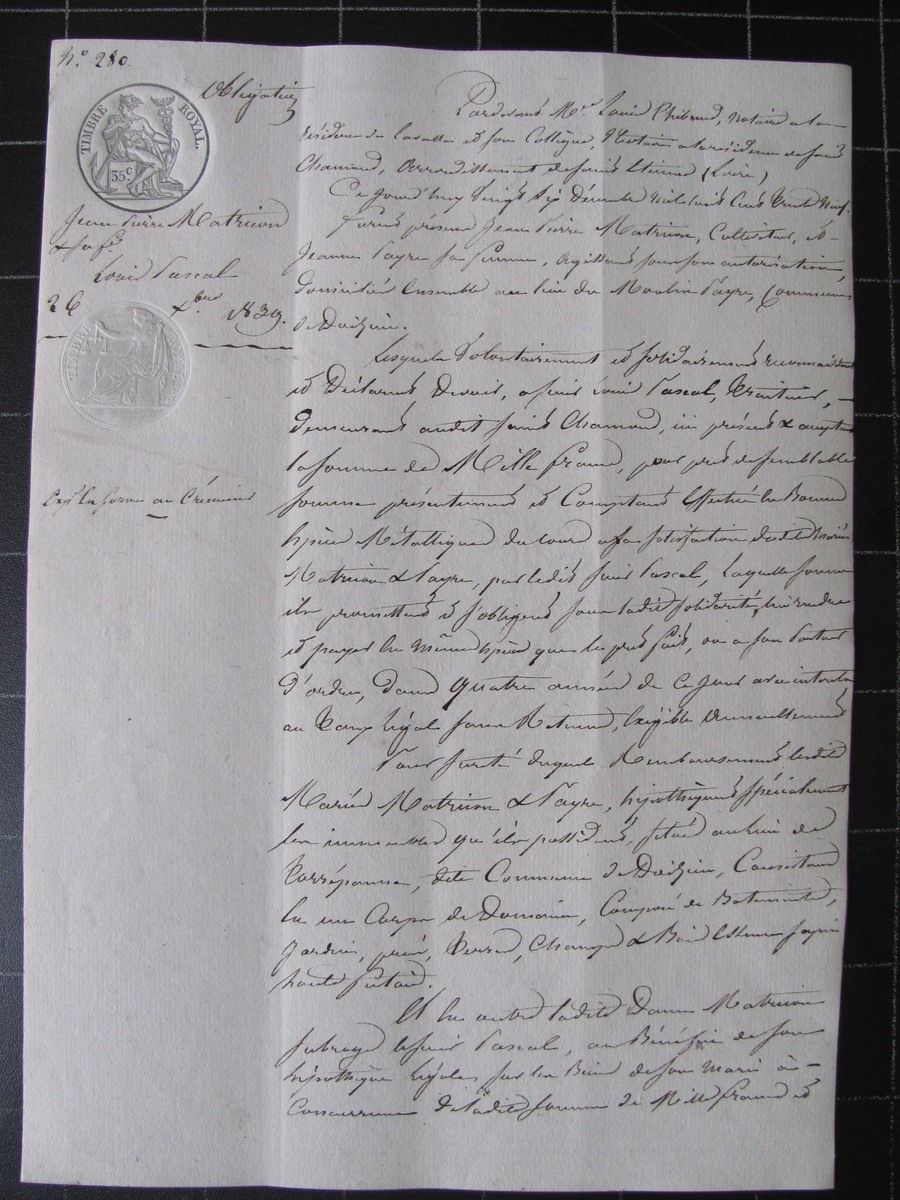 N.° 280
Obligation
TIMBRE ROYAL.
35 C.
Jean Pierre Matricon
& sa fe
Louis Pascal
26 Xbre 1839.
en Créancier
Pardevant Me Louis Thibaud, Notaire à la
résidence de Lavalla et son Collègue, Notaire à la résidence de Saint
Chamond, Arrondissement de Saint Etienne (Loire)
Ce jourd'huy vingt six Décembre mil huit cent trente neuf.
Furent présens Jean Pierre Matricon, Cultivateur, et
Jeanne Payre sa femme, agissant sous son autorisation,
domiciliés ensemble au lieu du Moulin Payre, Commune
de Doizieu.
Lesquels volontairement et solidairement reconnaissent
et Déclarent Devoir, à sieur Louis Pascal, Rentier,
demeurant audit Saint Chamond, ici présent & acceptant
la somme de Mille francs, pour prêt de semblable
somme présentement et Comptant effectué en Bonnes
espèces Métalliques du cours à la satisfaction desdits mariés
Matricon & Payre, par ledit sieur Pascal, Laquelle somme
ils promettent et s'obligent sous ladite solidarité, lui rendre
et payer en mêmes espèces que le prêt fait, ou à son Porteur
d'ordre, dans quatre années de ce jour avec intérêts
au Taux légal sans Retenue, exigible annuellement
Pour sureté duquel Remboursement lesdits
Mariés Matricon & Payre, hipothèquent spécialement
les immeubles qu'ils possèdent, situés au lieu de
dite Commune de Doizieu, Consistant
en un Corps de Domaine, Composé de Batiments,
Jardin, prés, Terres, Champs & Bois Essence sapin
haute futaie.
Et en outre ladite Dame Matricon
subroge le sieur Pascal, au Bénéfice de son
hipothèque légale sur les Biens de son Mari à
Concurrence de ladite somme de Mille francs et